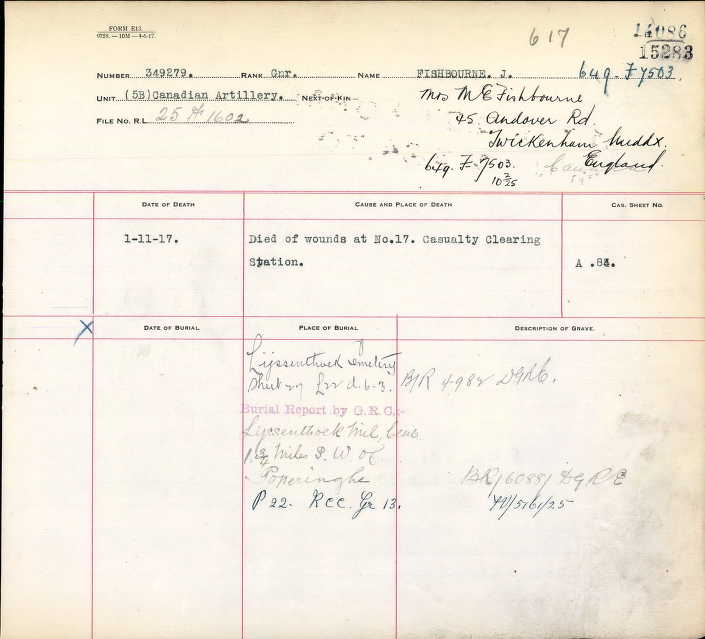 FORM E13.
9729.—10M—4-6-17.
617
14086
15283
NUMBER 349279. RANK Gnr. NAME FISHBOURNE. J. 649-F-7503.
UNIT (5B)Canadian Artillery. NEXT-OF-KIN Mrs M E Fishbourne
FILE NO. R.L. 25 A 1602 45. Andover Rd.
Twickenham Middx.
649. F-7503. England.
DATE OF DEATH CAUSE AND PLACE OF DEATH CAS. SHEET NO.
1-11-17. Died of wounds at No.17. Casualty Clearing
Station. A .84.
DATE OF BURIAL PLACE OF BURIAL DESCRIPTION OF GRAVE.
X
Lijssenthoek Cemetery
Sheet 27 L22 d.6.3. B/R 4982
Burial Report by G.R.C.:-
Lijssenthoek Mil. Cem.
1 3/4 Miles S.W of
Poperinghe
P 22. R C C. Gr 13.